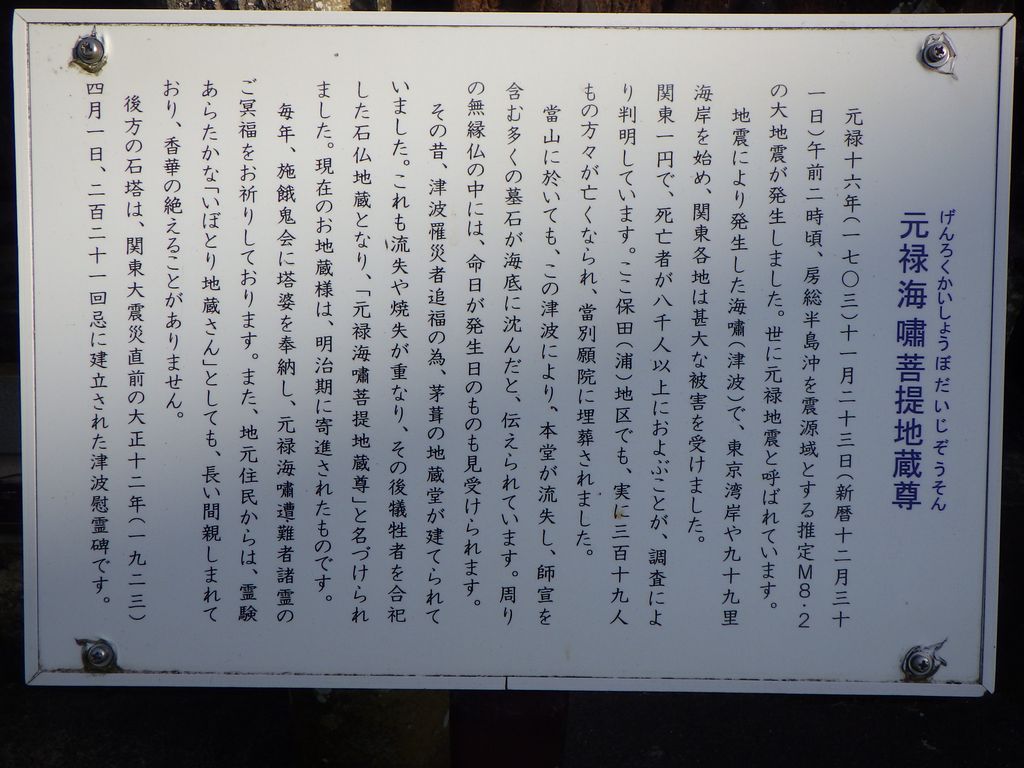 げんろくかいしょうぼだいじぞうそん
元禄海嘯菩提地蔵尊
元禄十六年(一七〇三)十一月二十三日(新暦十二月三十
一日)午前二時頃、房総半島沖を震源域とする推定M8・2
の大地震が発生しました。世に元禄地震と呼ばれています。
地震により発生した海嘯(津波)で、東京湾岸や九十九里
海岸を始め、関東各地は甚大な被害を受けました。
関東一円で、死亡者が八千人以上におよぶことが、調査によ
り判明しています。ここ保田(浦)地区でも、実に三百十九人
もの方々が亡くなられ、當別願院に埋葬されました。
當山に於いても、この津波により、本堂が流失し、師宣を
含む多くの墓石が海底に沈んだと、伝えられています。周り
の無縁仏の中には、命日が発生日のものも見受けられます。
その昔、津波罹災者追福の為、茅葺の地蔵堂が建てられて
いました。これも流失や焼失が重なり、その後犠牲者を合祀
した石仏地蔵となり、「元禄海嘯菩提地蔵尊」と名づけられ
ました。現在のお地蔵様は、明治期に寄進されたものです。
毎年、施餓鬼会に塔婆を奉納し、元禄海嘯遭難者諸霊の
ご冥福をお祈りしております。また、地元住民からは、霊験
あらたかな「いぼとり地蔵さん」としても、長い間親しまれて
おり、香華の絶えることがありません。
後方の石塔は、関東大震災直前の大正十二年(一九二三)
四月一日、二百二十一回忌に建立された津波慰霊碑です。